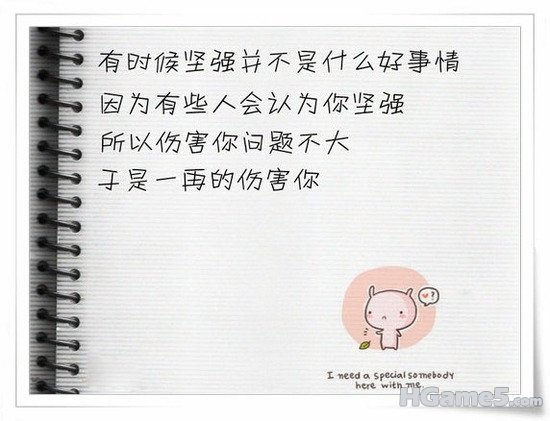 有时候坚强并不是什么好事情
因为有些人会认为你坚强
所以伤害你问题不大
于是一再的伤害你
?
I need a special somebody
here with me
HGame5.com